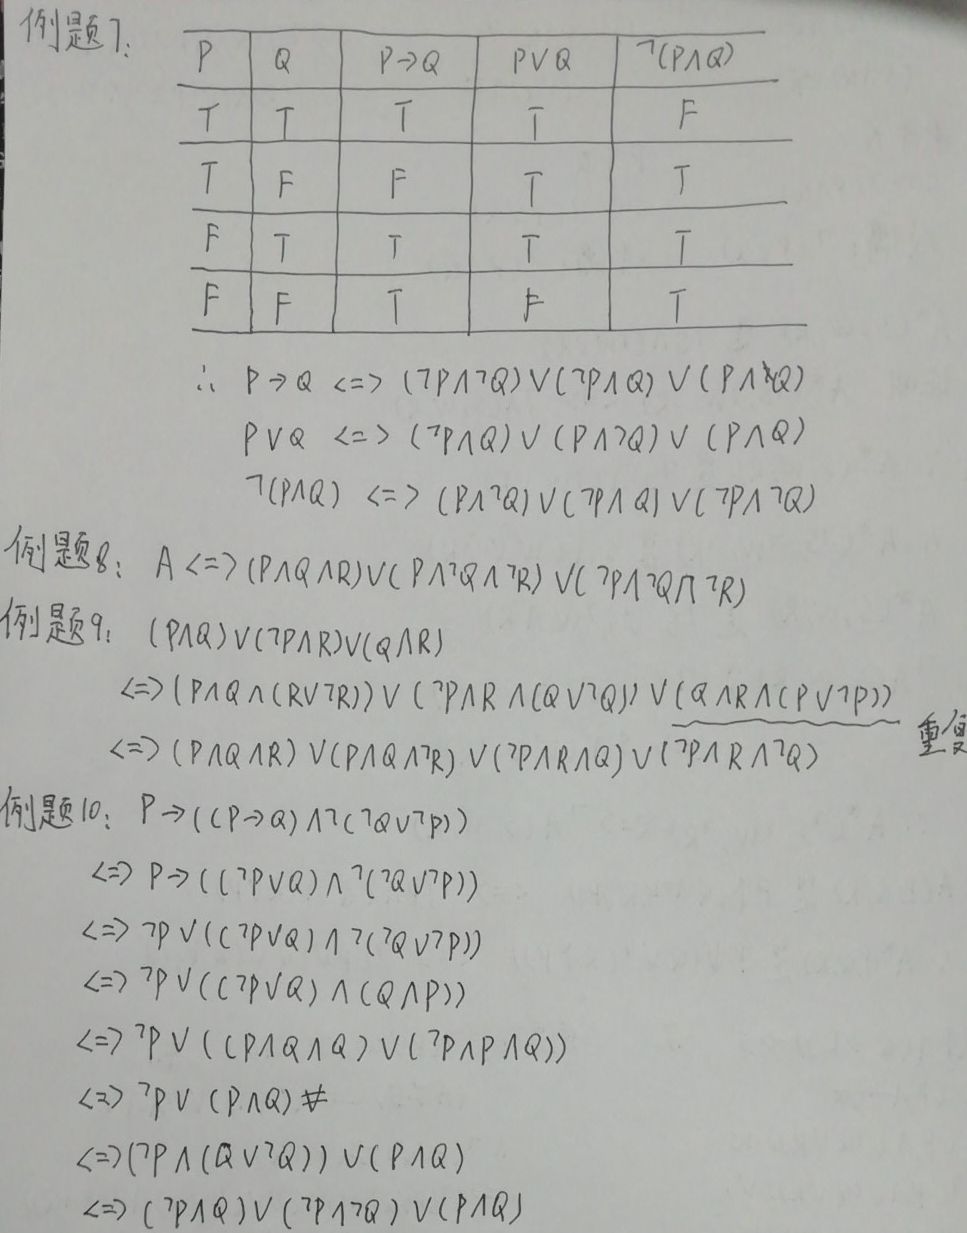 例题7:
P Q P→Q P∨Q ¬(P∧Q)
T T T T F
T F F T T
F T T T T
F F T F T
∴ P→Q <=> (¬P∧¬Q)∨(¬P∧Q)∨(P∧Q)
P∨Q <=> (¬P∧Q)∨(P∧¬Q)∨(P∧Q)
¬(P∧Q) <=> (P∧¬Q)∨(¬P∧Q)∨(¬P∧¬Q)
例题8: A<=>(P∧Q∧R)∨(P∧¬Q∧¬R)∨(¬P∧¬Q∧¬R)
例题9: (P∧Q)∨(¬P∧R)∨(Q∧R)
<=>(P∧Q∧(R∨¬R))∨(¬P∧R∧(Q∨¬Q))∨(Q∧R∧(P∨¬P))
重复
<=>(P∧Q∧R)∨(P∧Q∧¬R)∨(¬P∧R∧Q)∨(¬P∧R∧¬Q)
例题10: P→((P→Q)∧¬(¬Q∨¬P))
<=> P→((¬P∨Q)∧¬(¬Q∨¬P))
<=> ¬P∨((¬P∨Q)∧¬(¬Q∨¬P))
<=> ¬P∨((¬P∨Q)∧(Q∧P))
<=> ¬P∨((P∧Q∧Q)∨(¬P∧P∧Q))
<=> ¬P∨(P∧Q)#
<=>(¬P∧(Q∨¬Q))∨(P∧Q)
<=> (¬P∧Q)∨(¬P∧¬Q)∨(P∧Q)